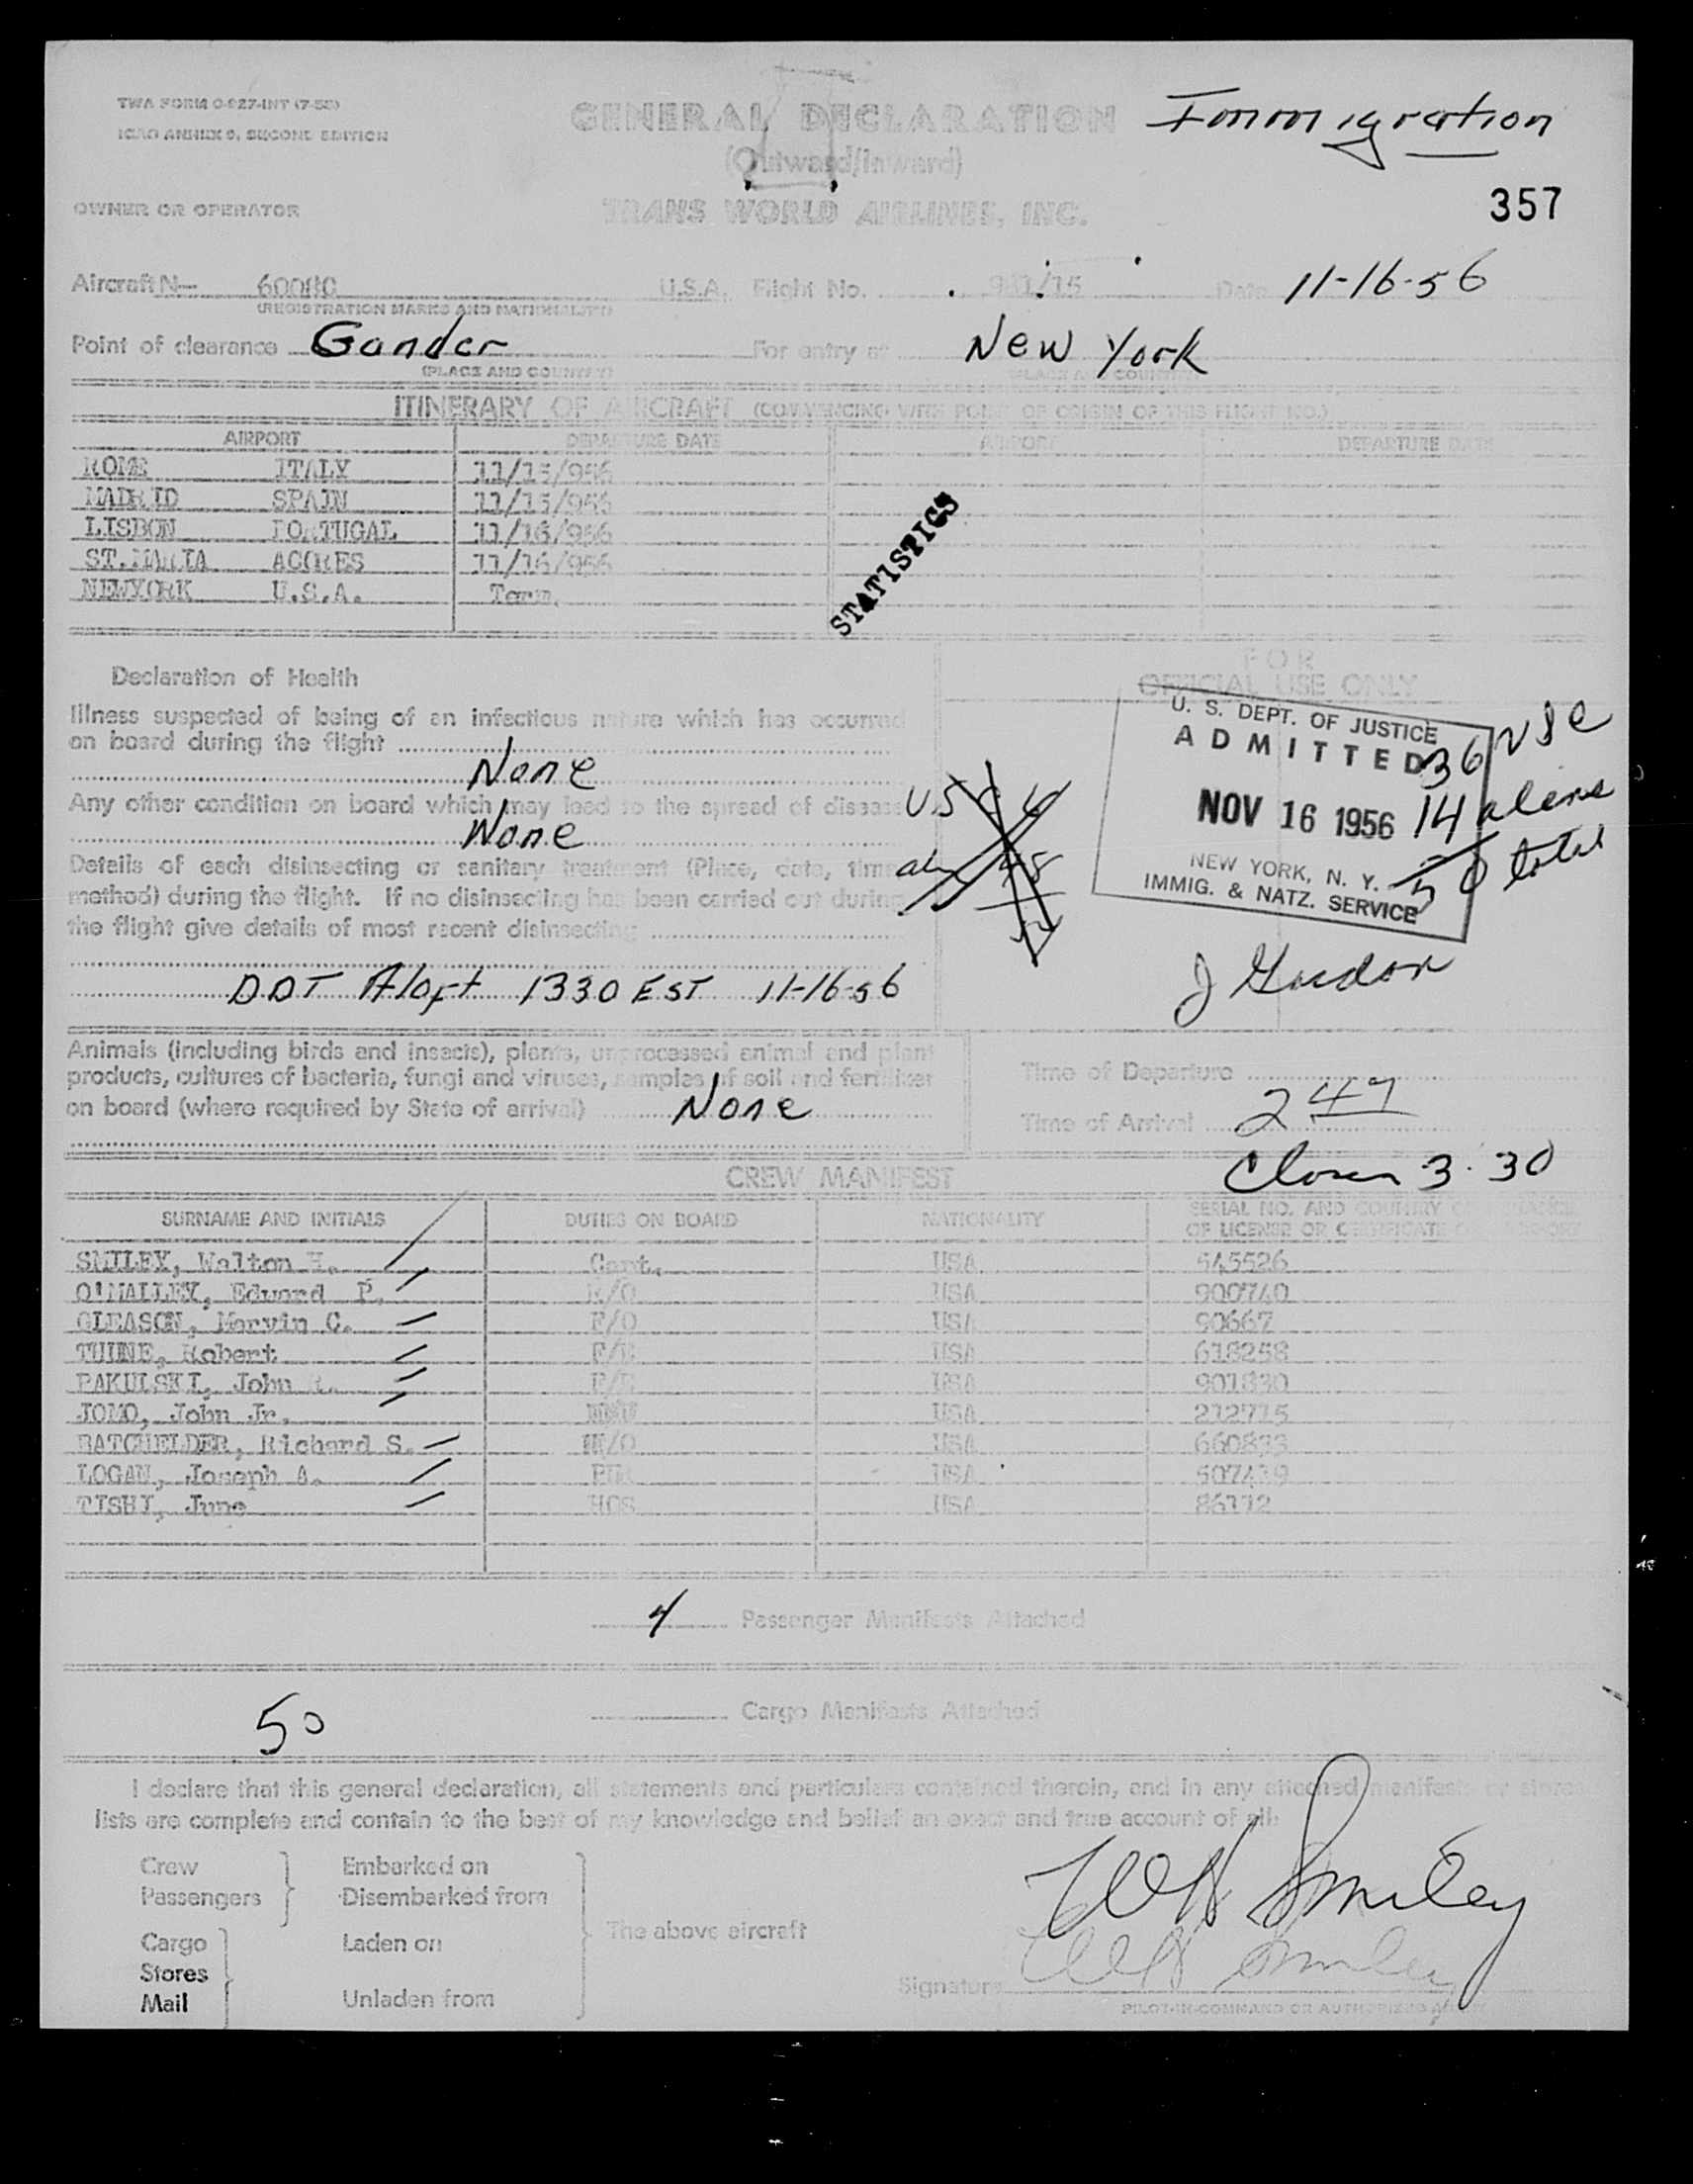 TWA FORM O-927-INT (7-55)
ICAO ANNEX 9, SECOND EDITION
GENERAL DECLARATION
(Outward/Inward)
Immigration
357
OWNER OR OPERATOR
TRANS WORLD AIRLINES, INC.
Aircraft N— U.S.A. Flight No. Date 11-16-56
(REGISTRATION MARKS AND NATIONALITY)
Point of clearance Gander For entry at New York
(PLACE AND COUNTRY) (PLACE AND COUNTRY)
ITINERARY OF AIRCRAFT (COMMENCING WITH POINT OF ORIGIN OF THIS FLIGHT NO.)
AIRPORT DEPARTURE DATE AIRPORT DEPARTURE DATE
ROME ITALY 11/15/956
MADRID SPAIN 11/15/956
LISBON PORTUGAL 11/16/956
ST.MARIA ACORES 11/16/956
NEWYORK U.S.A. Term.
STATISTICS
Declaration of Health
Illness suspected of being of an infectious nature which has occurred
on board during the flight
None
Any other condition on board which may lead to the spread of disease
None
Details of each disinsecting or sanitary treatment (Place, date, time
method) during the flight. If no disinsecting has been carried out during
the flight give details of most recent disinsecting
DDT Aloft 1330 EST 11-16-56
FOR
OFFICIAL USE ONLY
U. S. DEPT. OF JUSTICE
ADMITTED 36 USC
NOV 16 1956 14 aliens
NEW YORK, N. Y. 50 total
IMMIG. & NATZ. SERVICE
J Gordon
Animals (including birds and insects), plants, unprocessed animal and plant
products, cultures of bacteria, fungi and viruses, samples of soil and fertilizer
on board (where required by State of arrival) None
Time of Departure
Time of Arrival 2 47
3:30
CREW MANIFEST
SURNAME AND INITIALS DUTIES ON BOARD NATIONALITY SERIAL NO. AND COUNTRY OF ISSUANCE
OF LICENSE OR CERTIFICATE OR PASSPORT
SMILEY, Walton H. Capt. USA 545526
O'MALLEY, Edward P. USA 900740
GLEASON, Marvin C. F/O USA 90667
Robert USA 618258
PAKULSKI, John USA 901830
JOMO, John Jr. USA 212715
BATCHELDER, Richard S. USA 660833
LOGAN, Joseph A. PUR USA 507439
TISHI, June HOS USA 86112
4 Passenger Manifests Attached
50
Cargo Manifests Attached
I declare that this general declaration, all statements and particulars contained therein, and in any attached manifests or stores
lists are complete and contain to the best of my knowledge and belief an exact and true account of all:
Crew Embarked on
Passengers Disembarked from
The above aircraft
Cargo Laden on
Stores
Mail Unladen from
WH Smiley
Signature WH Smiley
PILOT-IN-COMMAND OR AUTHORIZED AGENT